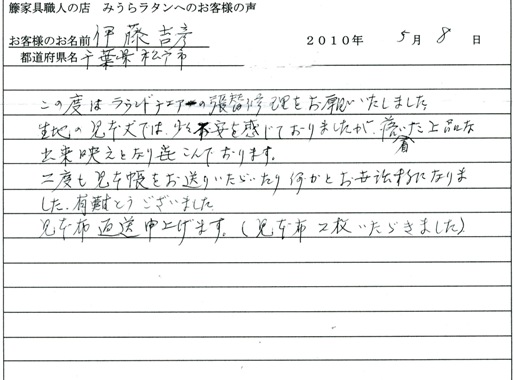 籐家具職人の店　みうらラタンへのお客様の声
お客様のお名前 伊藤 吉彦　2010年 5月 8日
都道府県名 千葉県松戸市
この度はラウンドチェアーの張替修理をお願いいたしました
生地の見本丈では、少々不安を感じておりましたが、落着いた上品な
出来映えとなり喜こんでおります。
二度も見本帳をお送りいただいたり何かとお世話するになりま
した、有難とうございました
見本布 返送申上げます。(見本布2枚いただきました)